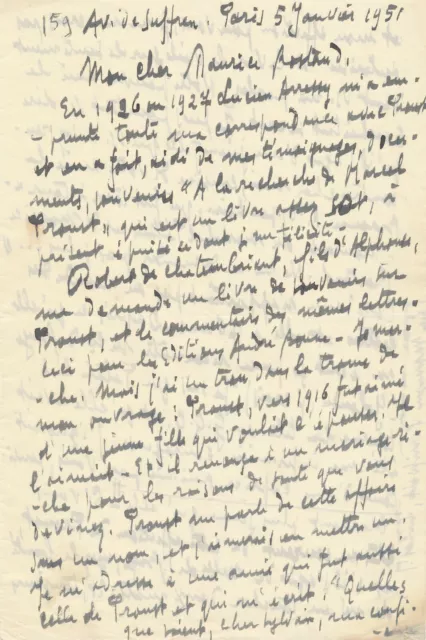 159 Av. de Suffren. Paris 5 Janvier 1951
Mon cher Maurice Rostand,
En 1926 ou 1927 Lucien m'a em-
-prunté toute ma correspondance avec Proust
et en a fait, aidé de mes témoignages, docu-
ments, souvenirs "A la recherche de Marcel
Proust" qui est un livre assez sot, à
présent épuisé et dont je me félicite.
Robert de Chateaubriant, fils d'Alphonse,
me demande un livre de souvenirs sur
Proust, et le commentaire des mêmes lettres.
ceci pour les Editions André Bonne -
-che. Mais j'ai un trou dans la trame de
mon ouvrage : Proust, vers 1916 fut aimé
d'une jeune fille qui voulait l'épouser. Il
l'aimait - Et il renonça à un mariage ri-
-che pour les raisons de santé que vous
devinez. Proust me parle de cette affaire
sans un nom, et j'aimerais en mettre un.
Je m'adresse à une amie qui fut aussi
celle de Proust et qui m'écrit : "Quelles
que soient, cher Sylvain, ma confi-